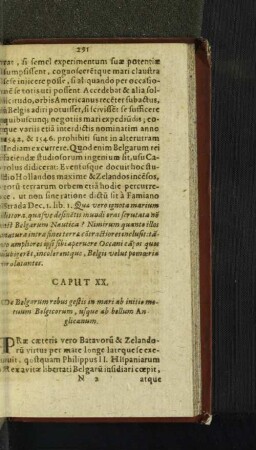 291
si semel experimentum suæ potentiæ
sumpsissent, cognoscerétque mari claustra
se injicere posse, si alquando per occasio-
se totis uti possent. Accedebat & alia sol-
licitudo, orbis Americanus recéter subactus,
Belgis aditi potuisset, si scivisset se sufficere
quibuscunq; negotiis mari expediūdis; eo-
que variis etiā interdictis nominatim anno
& 1546. prohibiti sunt in alteram
Indiam excurrere. Quod enim Belgarum rei
faciendæ studiosorum ingenium sit, usu Ca-
rolus didicerat. Eventusque docuit hoc stu-
dio Hollandos maxime & Zelandos incésos,
totū terrarum orbem etiā hodie percurre-
re, ut non sineratione dictū sit à Famiano
Strada Dec. 1. lib. 1. Qua vero ignota marium
littora, quasve desinentis mundi oras scrutata nō
est Belgarum Nautica? Nimirum quanto illos
natura intra fines terræ cōtractiores inclusit: tā-
to ampliores ipsi sibi aperuere Oceani cāpos quos
incolerentque, Belgis velut pomœria

CAPUT XX.
De Belgarum rebus gestis in mari ab initio mo-
tuum Belgicorum, usque ab bellum An-
glicanum.
PRæ cæteris vero Batavorū & Zelando-
rū virtus per mare longe latéque se exe-
ruit, postquam Philippus II. Hispaniarum
Rex avitæ libertati Belgarū insidiari cœpit,
N 2 atque